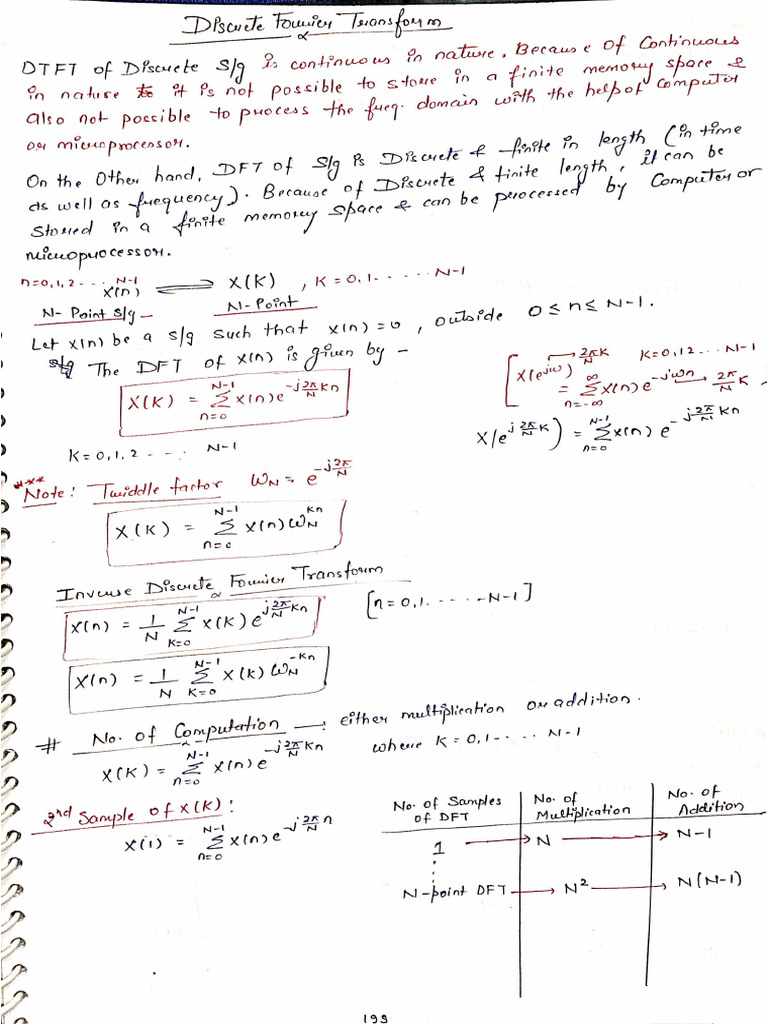 Discrete Fourier Transform
DTFT of Discrete S/g is continuous in nature. Because of Continuous
in nature it is not possible to store in a finite memory space &
also not possible to process the freq. domain with the help of computer
or microprocessor.
On the Other hand, DFT of S/g is Discrete & finite in length (in time
as well as frequency). Because of Discrete & finite length, it can be
stored in a finite memory space & can be processed by Computer or
microprocessor.
n=0,1,2 ---- N-1
x(n) ⇌ X(K) , K = 0,1 ------ N-1
N- Point S/g N-Point
Let x(n) be a s/g such that x(n)=0, outside 0 ≤ n ≤ N-1.
The DFT of x(n) is given by -
X(K) = Σ_{n=0}^{N-1} x(n) e^{-j 2π/N Kn}
K = 0,1,2 --- N-1
[X(e^{jω}) → 2π/N K K=0,1 2 --- N-1
= Σ_{n=-∞}^{∞} x(n) e^{-jωn} → 2π/N K
X(e^{j 2π/N K}) = Σ_{n=0}^{N-1} x(n) e^{-j 2π/N Kn}
Note: Twiddle factor ω_N = e^{-j 2π/N}
X(K) = Σ_{n=0}^{N-1} x(n) ω_N^{Kn}
Inverse Discrete Fourier Transform
x(n) = 1/N Σ_{K=0}^{N-1} X(K) e^{j 2π/N Kn} [n=0,1------N-1]
x(n) = 1/N Σ_{K=0}^{N-1} X(K) ω_N^{-Kn}
# No. of Computation → either multiplication or addition.
X(K) = Σ_{n=0}^{N-1} x(n) e^{-j 2π/N Kn} where K = 0,1 ---- N-1
2nd Sample of X(K):
X(1) = Σ_{n=0}^{N-1} x(n) e^{-j 2π/N n}
No. of Samples of DFT | No. of Multiplication | No. of Addition
1 → N → N-1
N-point DFT → N² → N(N-1)
199